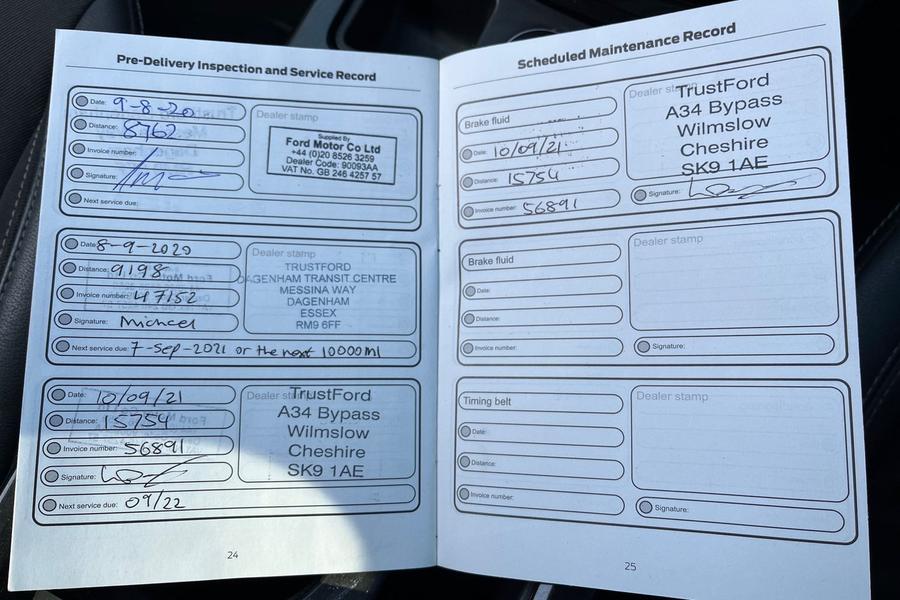 Pre-Delivery Inspection and Service Record
Date: 9-8-20
Distance: 8762
Invoice number:
Signature:
Next service due:
Dealer stamp
Supplied By
Ford Motor Co Ltd
+44 (0)20 8526 3259
Dealer Code: 90093AA
VAT No. GB 246 4257 57
Date: 8-9-2020
Distance: 9198
Invoice number: 47152
Signature: Michael
Next service due: 7-Sep-2021 or the next 10000ml
Dealer stamp
TRUSTFORD
DAGENHAM TRANSIT CENTRE
MESSINA WAY
DAGENHAM
ESSEX
RM9 6FF
Date: 10/09/21
Distance: 15754
Invoice number: 56891
Signature:
Next service due: 09/22
Dealer stamp
TrustFord
A34 Bypass
Wilmslow
Cheshire
SK9 1AE
24
Scheduled Maintenance Record
Brake fluid
Date: 10/09/21
Distance: 15754
Invoice number: 56891
Dealer stamp
TrustFord
A34 Bypass
Wilmslow
Cheshire
SK9 1AE
Signature:
Brake fluid
Date:
Distance:
Invoice number:
Dealer stamp
Signature:
Timing belt
Date:
Distance:
Invoice number:
Dealer stamp
Signature:
25